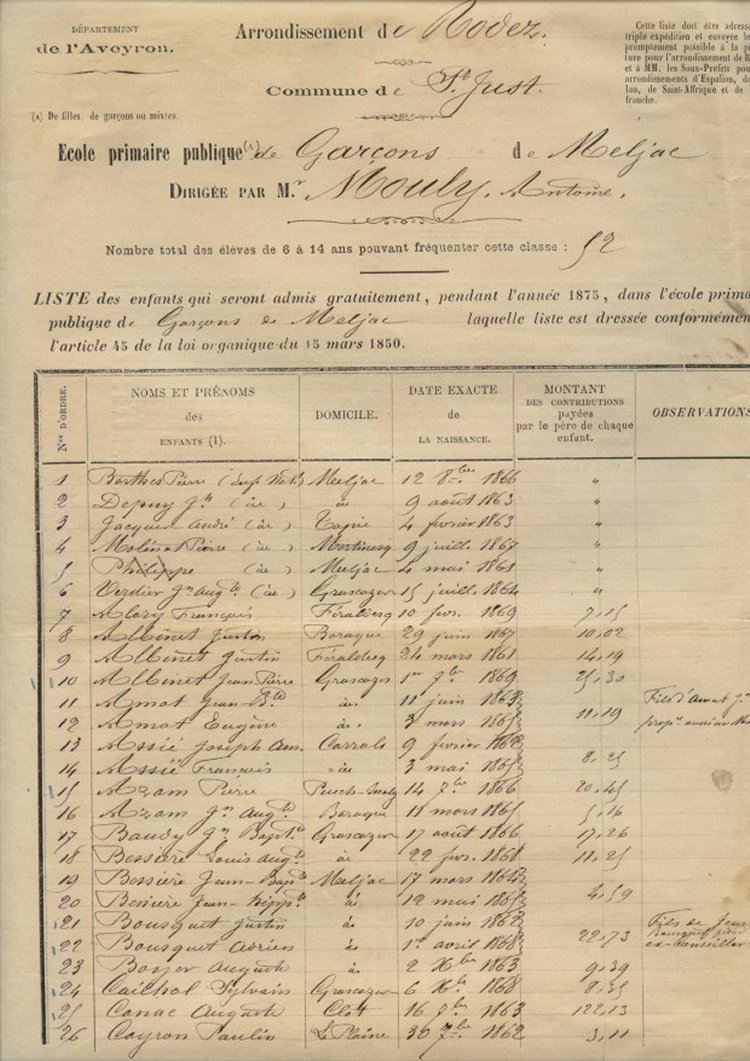 DÉPARTEMENT
de l'Aveyron.
Arrondissement de Rodez.
Commune de St Just.
Cette liste doit être adress
triple expédition et envoyée le
promptement possible à la p
ture pour l'arrondissement de R
et à MM. les Sous-Préfets pou
arrondissements d'Espalion, de
lau, de Saint-Affrique et de
franche.
(1) De filles, de garçons ou mixtes.
Ecole primaire publique (1) de Garçons de Meljac
DIRIGÉE PAR Mr Mouly, Antoine.
Nombre total des élèves de 6 à 14 ans pouvant fréquenter cette classe : 52
LISTE des enfants qui seront admis gratuitement, pendant l'année 1875, dans l'école prima
publique de Garçons de Meljac laquelle liste est dressée conformémen
l'article 45 de la loi organique du 15 mars 1850.
Nos D'ORDRE. NOMS ET PRÉNOMS des ENFANTS (1). DOMICILE. DATE EXACTE de LA NAISSANCE. MONTANT DES CONTRIBUTIONS payées par le père de chaque enfant. OBSERVATIONS
1 Barthes Pierre Meljac 12 8bre 1866 "
2 Depuy Jn (id) id 9 août 1863 "
3 Jacques André (id) 4 février 1863 "
4 Molénat Pierre (id) 9 juill. 1867 "
5 Philippe (id) Meljac 4 mai 1861 "
6 Verdier Jn Augte (id) Grascazer 15 juill. 1864 "
7 Alary François Féraldesq 10 fév. 1869 7,15
8 Albinet Justin Baraque 29 juin 1867 10,02
9 Albinet Justin Féraldesq 24 mars 1861 14,19
10 Albinet Jean Pierre Grascazer 1er 7bre 1869 25,30
11 Amat Jean-Bte id. 11 juin 1863
12 Amat Eugène id. 3 mars 1865 11,19 Fils d'Amat Jn
13 Assié Joseph Am. Carrals 9 février 1862
14 Assié François id 3 mai 1865 8,25
15 Azam Pierre 14 7bre 1866 20,45
16 Azam Jn Augte Baraque 11 mars 1865 5,16
17 Baudy Jn Bapte Grascazer 17 août 1866 17,26
18 Bessière Louis Augte id 22 fév. 1868 11,25
19 Bessière Jean-Bapte Meljac 17 mars 1862
20 Bessière Jean-Hippte id 12 mai 1865 4,59
21 Bousquet Justin id 10 juin 1862
22 Bousquet Adrien id 1er avril 1868 22,73 Fils de Jean Bousquet ex-conseiller
23 Boyer Auguste id 2 Xbre 1863 9,39
24 Cailhol Sylvain Grascazer 6 Xbre 1868 8,35
25 Canac Auguste Clôt 16 7bre 1863 122,13
26 Cayron Paulin La Plaine 30 7bre 1862 3,11